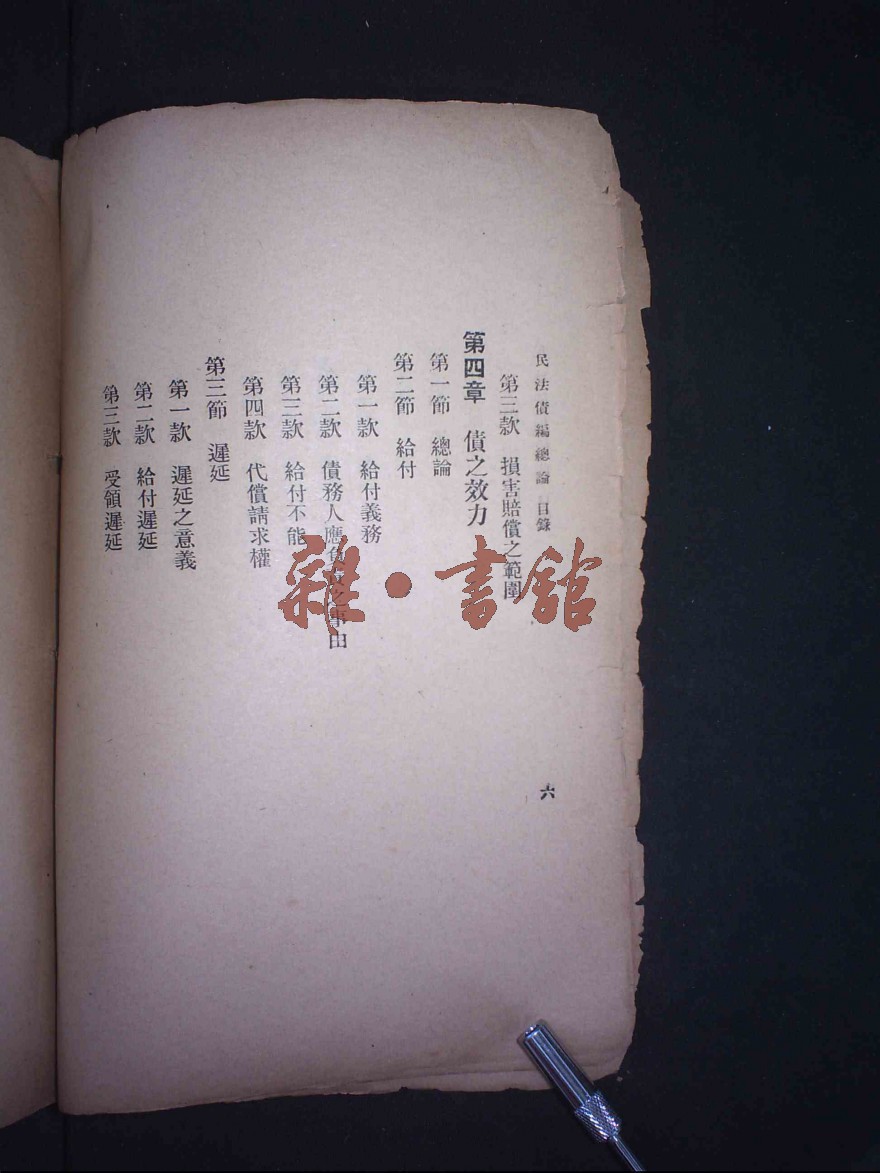 民法債編總論 目錄
六
第三款 損害賠償之範圍
第四章 債之效力
第一節 總論
第二節 給付
第一款 給付義務
第二款 債務人應負責之事由
第三款 給付不能
第四款 代償請求權
第三節 遲延
第一款 遲延之意義
第二款 給付遲延
第三款 受領遲延
雜·書館